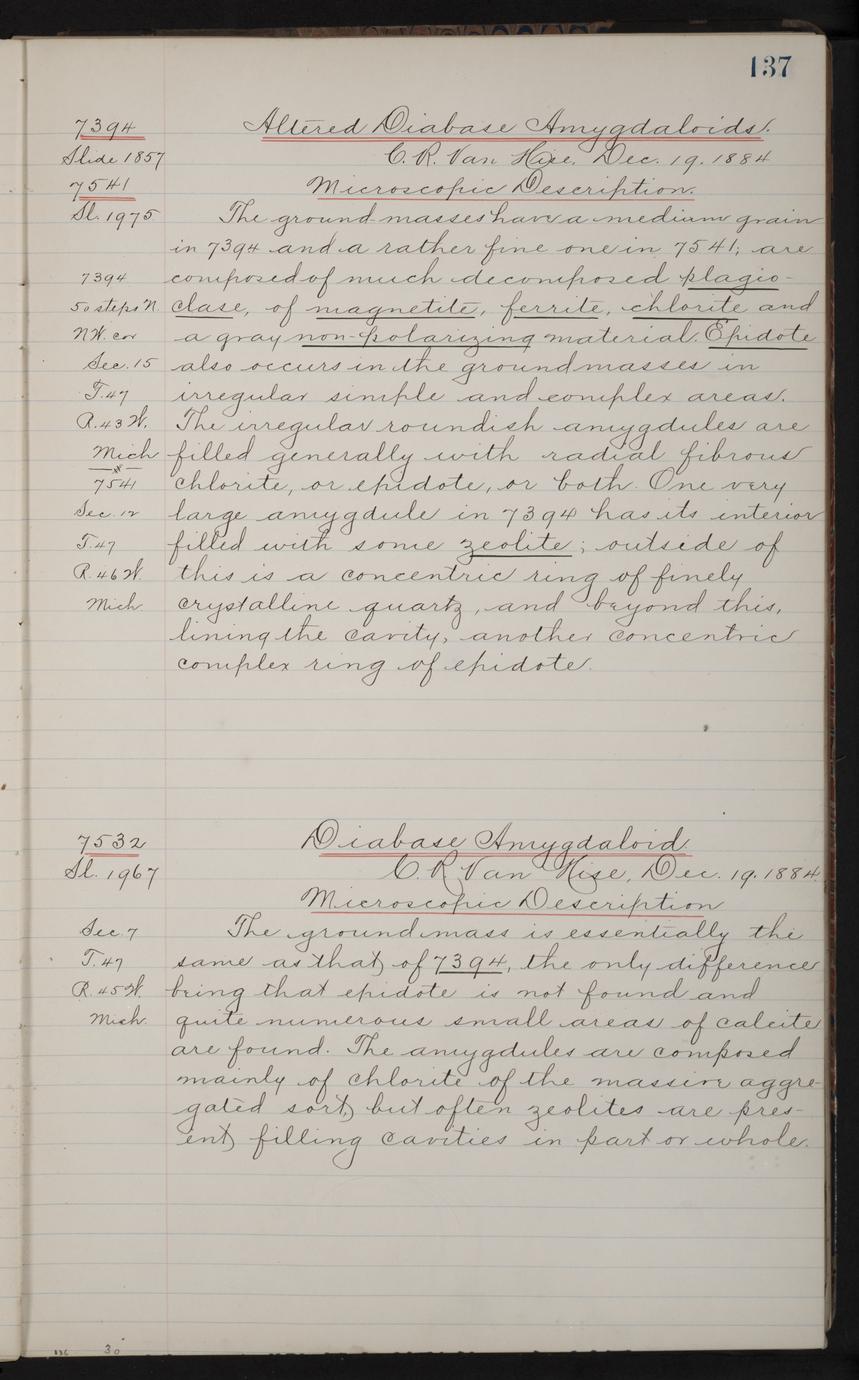 137
7394 Altered Diabase Amygdaloids.
Slide 1857 C. R. Van Hise, Dec. 19. 1884
7541 Microscopic Description.
Sl. 1975 The ground-masses have a medium grain
in 7394 and a rather fine one in 7541; are
7394 composed of much decomposed plagio-
50 steps N. clase, of magnetite, ferrite, chlorite and
N.W. cor a gray non-polarizing material. Epidote
Sec. 15 also occurs in the groundmasses in
T. 47 irregular simple and complex areas.
R. 43 W. The irregular roundish amygdules are
Mich filled generally with radial fibrous
7541 chlorite, or epidote, or both. One very
Sec. 12 large amygdule in 7394 has its interior
T. 47 filled with some zeolite; outside of
R. 46 W. this is a concentric ring of finely
Mich. crystalline quartz, and beyond this,
lining the cavity, another concentric
complex ring of epidote.
7532 Diabase Amygdaloid.
Sl. 1967 C. R. Van Hise, Dec. 19. 1884.
Microscopic Description
Sec. 7 The ground mass is essentially the
T. 47 same as that of 7394, the only difference
R. 45 W. being that epidote is not found and
Mich. quite numerous small areas of calcite
are found. The amygdules are composed
mainly of chlorite of the massive aggre-
gated sort, but often zeolites are pres-
ent, filling cavities in part or whole.
136 30